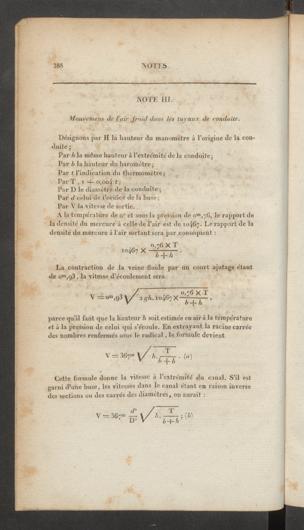 388 NOTES.
NOTE III.
Mouvement de l'air froid dans les tuyaux de conduite.
Désignons par H la hauteur du manomètre à l'origine de la con-
duite ;
Par h la même hauteur à l'extrémité de la conduite ;
Par b la hauteur du baromètre ;
Par t l'indication du thermomètre ;
Par T, 1 + 0,004 t ;
Par D le diamètre de la conduite ;
Par d celui de l'orifice de la buse ;
Par V la vitesse de sortie.
A la température de 0° et sous la pression de 0m,76, le rapport de
la densité du mercure à celle de l'air est de 10467. Le rapport de la
densité du mercure à l'air sortant sera par conséquent :
10467 × 0,76 × T / b + h .
La contraction de la veine fluide par un court ajutage étant
de 0m,93, la vitesse d'écoulement sera
V = 0m,93 √ 2gh. 10467 × 0,76 × T / b + h ,
parce qu'il faut que la hauteur h soit estimée en air à la température
et à la pression de celui qui s'écoule. En extrayant la racine carrée
des nombres renfermés sous le radical, la formule devient
V = 367m √ h. T / b + h . (a)
Cette formule donne la vitesse à l'extrémité du canal. S'il est
garni d'une buse, les vitesses dans le canal étant en raison inverse
des sections ou des carrés des diamètres, on aurait :
V = 367m d² / D² √ h. T / b + h ; (b)